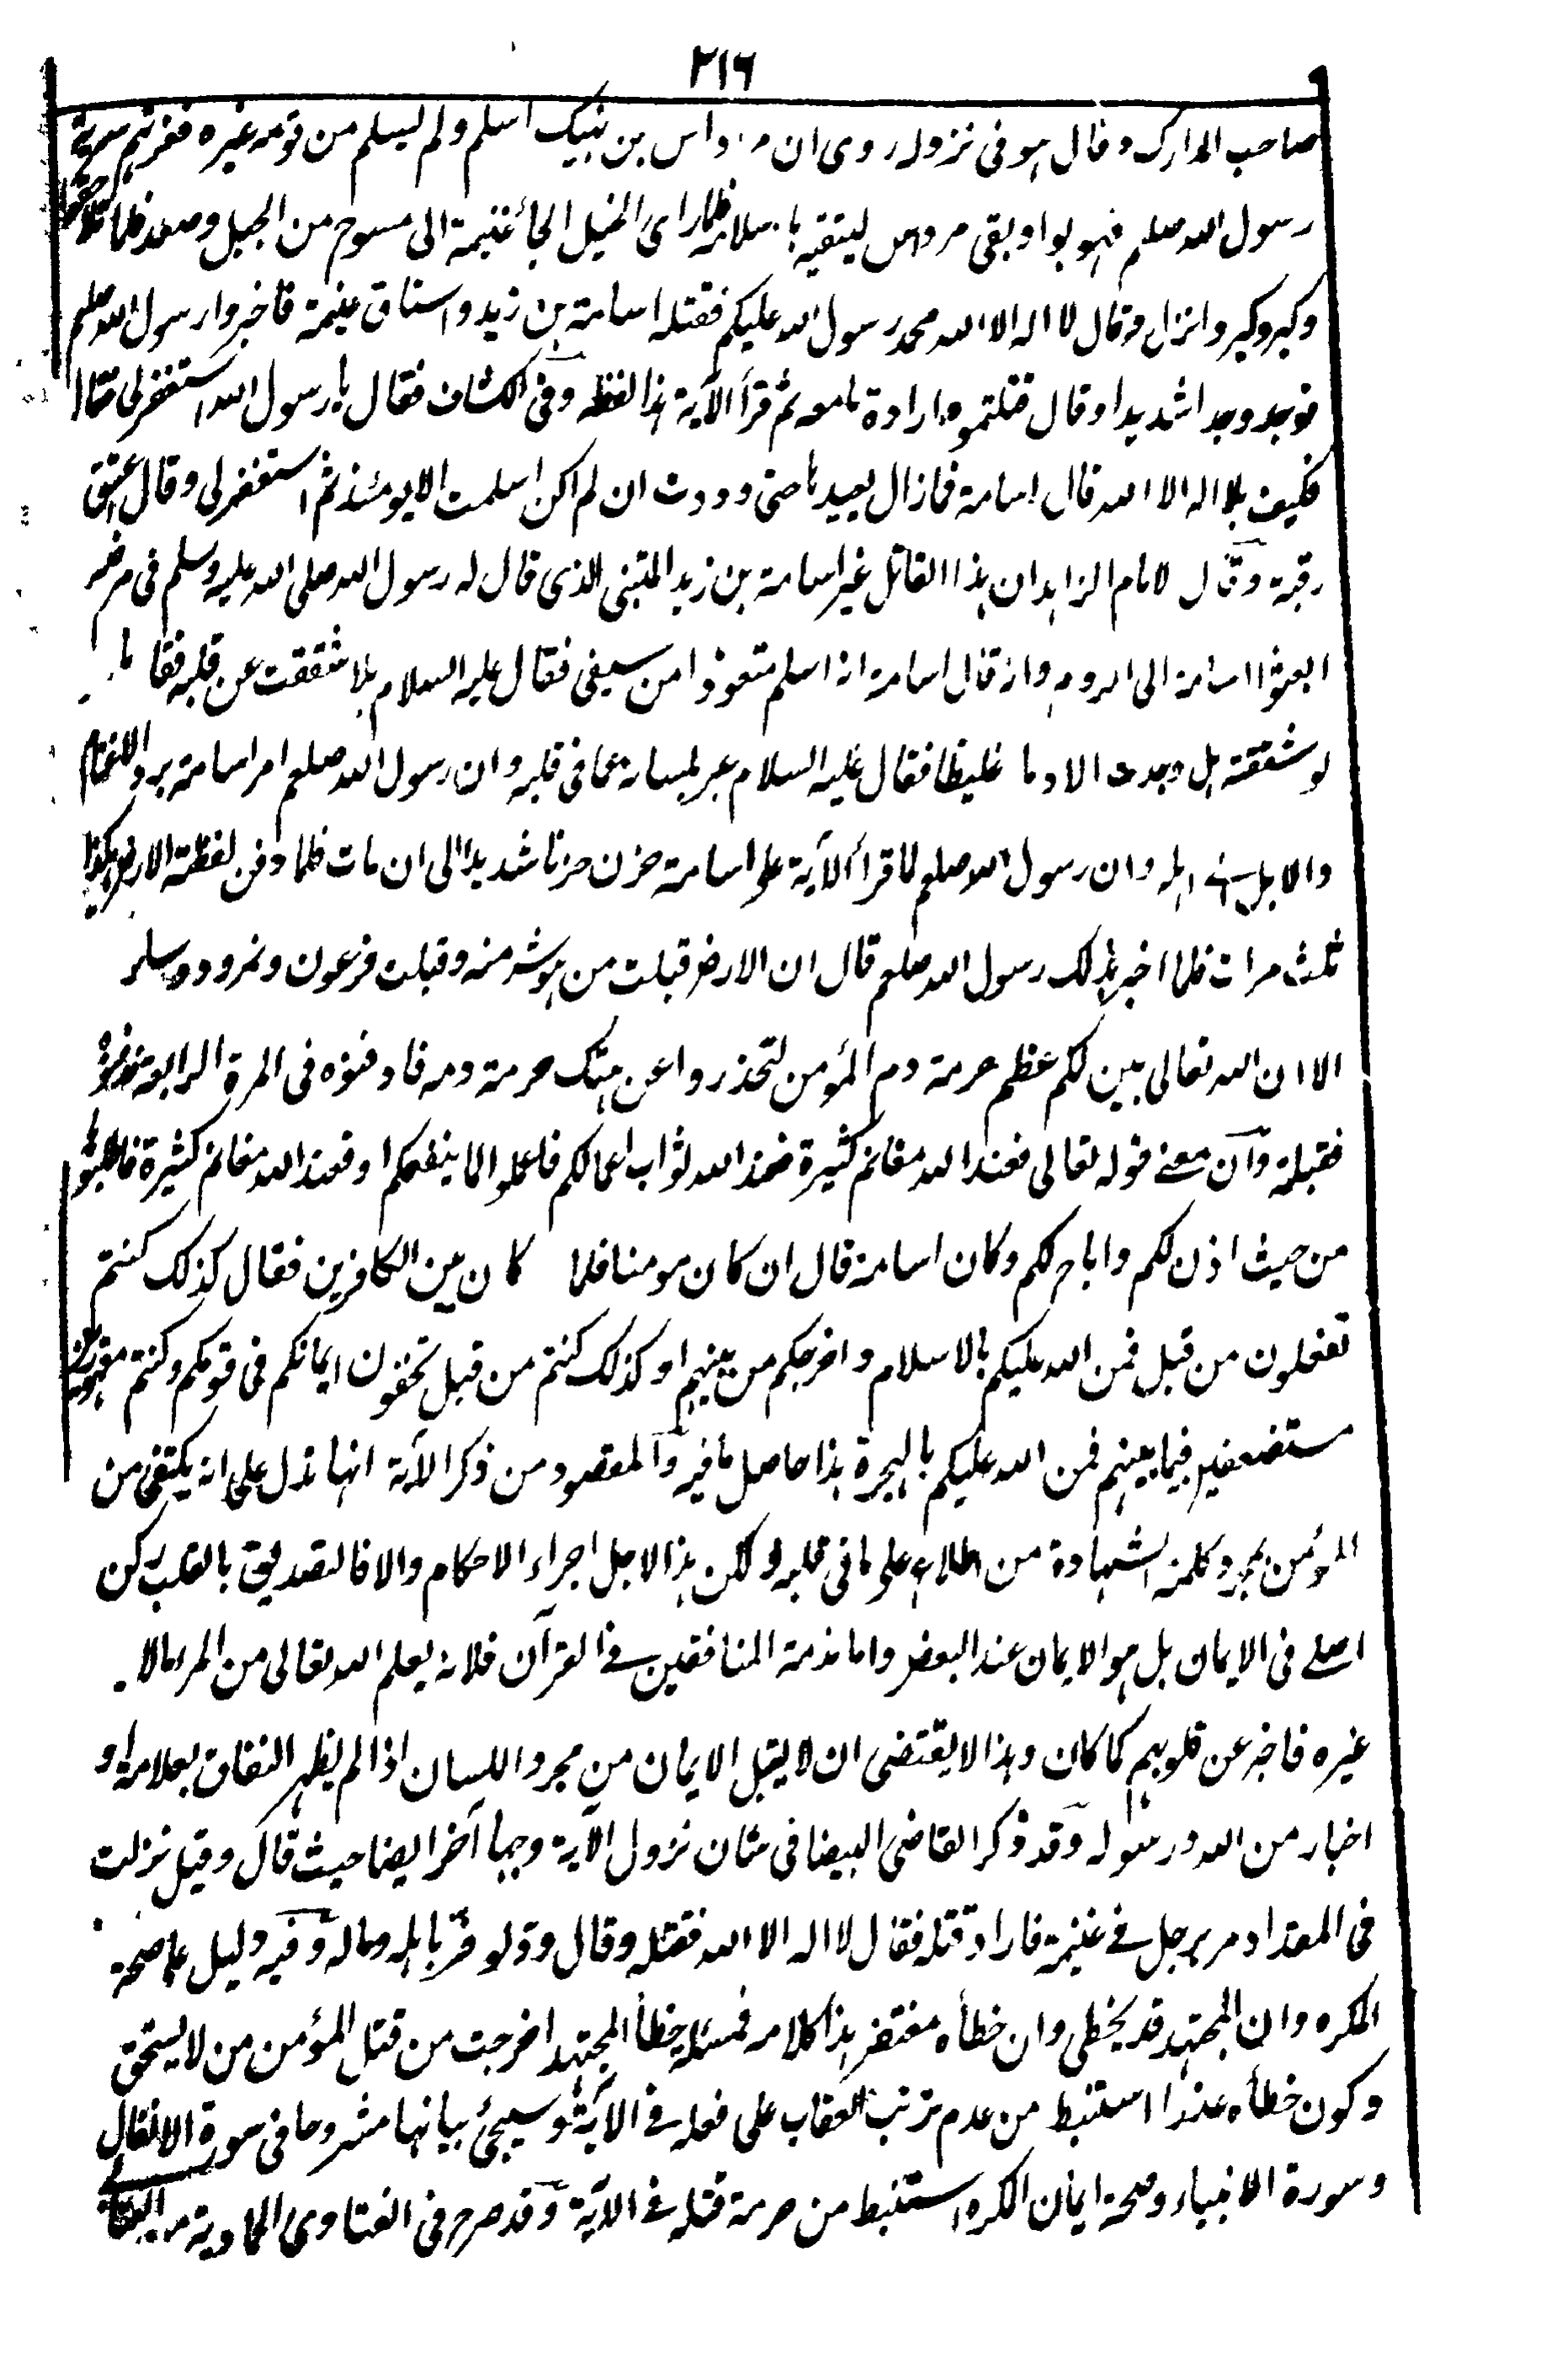 ٢١٦
صاحب المدارك وقال هو فى نزوله روى ان مرداس بن نهيك اسلم ولم يسلم من قومه غيره فغزتهم سرية
رسول الله صلعم فهربوا وبقى مرداس ليتقيه باسلامه فلما راى الخيل الجأ غنيمة الى منعوج من الجبل وصعد فلما تلاحقوا
وكبروا كبر وانزل وقال لا اله الا الله محمد رسول الله عليكم فقتله اسامة بن زيد واستاق غنيمة فاخبروا رسول الله صلعم
فوجد وجدا شديدا وقال قتلتموه ارادة ما معه ثم قرأ الآية هذا لفظه وفى الكشاف فقال يا رسول الله استغفر لى قال
فكيف بلا اله الا الله قال اسامة فما زال يعيدها حتى وددت ان لم اكن اسلمت الا يومئذ ثم استغفر لى وقال اعتق
رقبة وقال الامام الزاهد ان هذا القاتل غير اسامة بن زيد المتبنى الذى قال له رسول الله صلى الله عليه وسلم فى مرضه
ابعثوا اسامة الى الروم وانه قال اسامة انه اسلم متعوذا من سيفى فقال عليه السلام هلا شققت عن قلبه فقال ما
لو شققته هل وجدت الا دما غليظا فقال عليه السلام عبر بلسانه عما فى قلبه وان رسول الله صلعم امر اسامة برد الاغنام
والابل الى اهله وان رسول الله صلعم لما قرأ الآية على اسامة حزن حزنا شديدا الى ان مات فلما دفن لفظته الارض هكذا
ثلث مرات فلما اخبر بذلك رسول الله صلعم قال ان الارض قبلت من هو شر منه وقبلت فرعون ونمرود
الا ان الله تعالى بين لكم عظم حرمة دم المؤمن لتحذروا عن هتك حرمة دمه فادفنوه فى المرة الرابعة فدفنوه
فقبلته وان معنى قوله تعالى فعند الله مغانم كثيرة فعند الله ثواب اعمالكم فاعملوا لما ينفعكم او فعند الله مغانم كثيرة فاطلبوا
من حيث اذن لكم واباح لكم وكان اسامة قال ان كان مومنا فلما كان بين الكافرين فقال كذلك كنتم
تفعلون من قبل فمن الله عليكم بالاسلام واخرجكم من بينهم او كذلك كنتم من قبل تخفون ايمانكم فى قومكم وكنتم مقهورين
مستضعفين فيما بينهم فمن الله عليكم بالهجرة هذا حاصل ما فيه والمقصود من ذكر الآية انها تدل على انه يكتفى من
المؤمن بمجرد كلمة الشهادة من اطلاع على ما فى قلبه ولكن هذا لاجل اجراء الاحكام والا فالتصديق بالقلب ركن
اصلى فى الايمان بل هو الايمان عند البعض واما مذمة المنافقين فى القرآن فلانه يعلم الله تعالى من المرء ما لا
غيره فاخبر عن قلوبهم كما كان وهذا لا يقتضى ان لا يقبل الايمان من مجرد اللسان اذا لم يظهر النفاق بعلامة او
اخبار من الله ورسوله وقد ذكر القاضى البيضا فى شان نزول الآية وجها آخر ايضا حيث قال وقيل نزلت
فى المقداد مر برجل فى غنيمة فاراد قتله فقال لا اله الا الله فقتله وقال ود لو فر باهله وماله وفيه دليل على صحة
المكره وان المجتهد قد يخطى وان خطأه مغتفر هذا كلامه فمسئلة خطأ المجتهد اخرجت من قتل المؤمن من لا يستحق
وكون خطأه عذرا استنبط من عدم ترتب العقاب على فعله فى الآية وسيجئ بيانها مشروحا فى سورة الانفال
وسورة الانبياء وصحة ايمان المكره استنبط من حرمة قتله فى الآية وقد صرح فى الفتاوى الحمادية